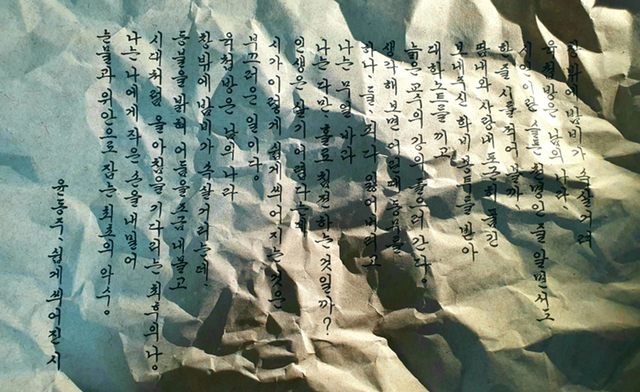 창밖에 밤비가 속살거려
육첩방은 남의 나라,
시인이란 슬픈 천명인 줄 알면서도
한줄 시를 적어 볼까,
땀내와 사랑내 포근히 품긴
보내주신 학비 봉투를 받아
대학 노트를 끼고
늙은 교수의 강의 들으러 간다.
생각해 보면 어린때 동무를
하나, 둘, 죄다 잃어버리고
나는 무얼 바라
나는 다만, 홀로 침전하는 것일까?
인생은 살기 어렵다는데
시가 이렇게 쉽게 씌어지는 것은
부끄러운 일이다.
육첩방은 남의 나라
창밖에 밤비가 속살거리는데,
등불을 밝혀 어둠을 조금 내몰고
시대처럼 올 아침을 기다리는 최후의 나.
나는 나에게 작은 손을 내밀어
눈물과 위안으로 잡는 최초의 악수.
윤동주, 쉽게 씌어진 시